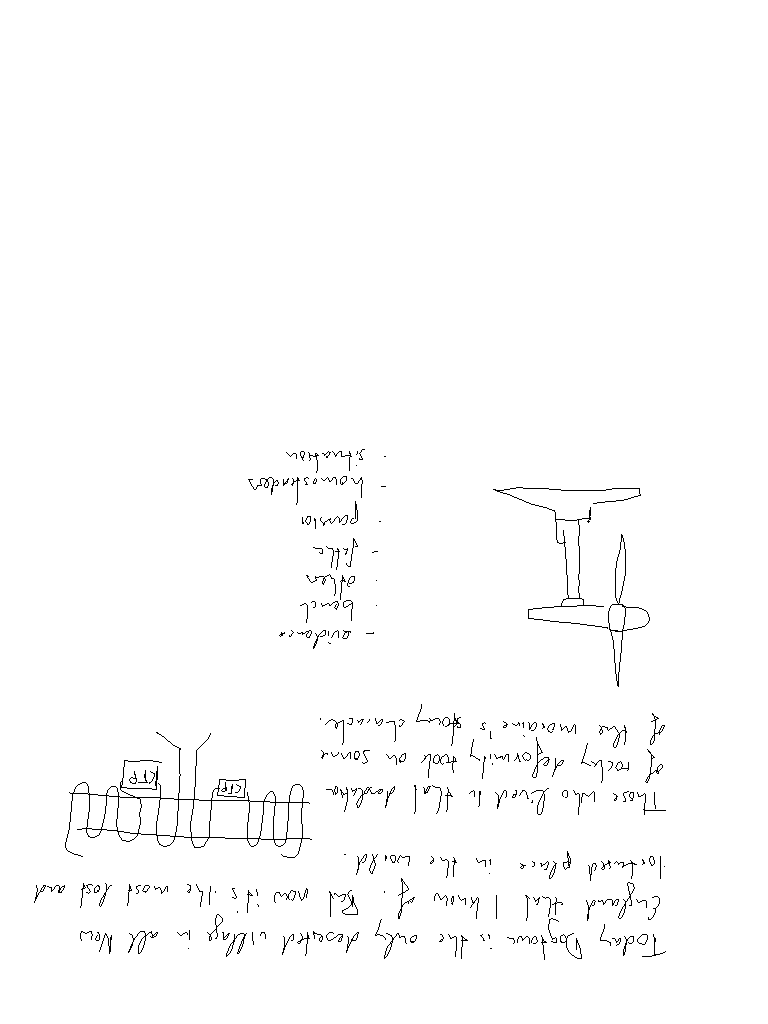 Today Dogtown is the only deserted village in all New
England that I know of. But now it's the most lost and
tortured place in the world.
Those who lived in that desolation
of rocky deformity took on some
of the moraine's stony character.
CTP
CTP
- evidence
· bench
· often
- homesteaders
· situation